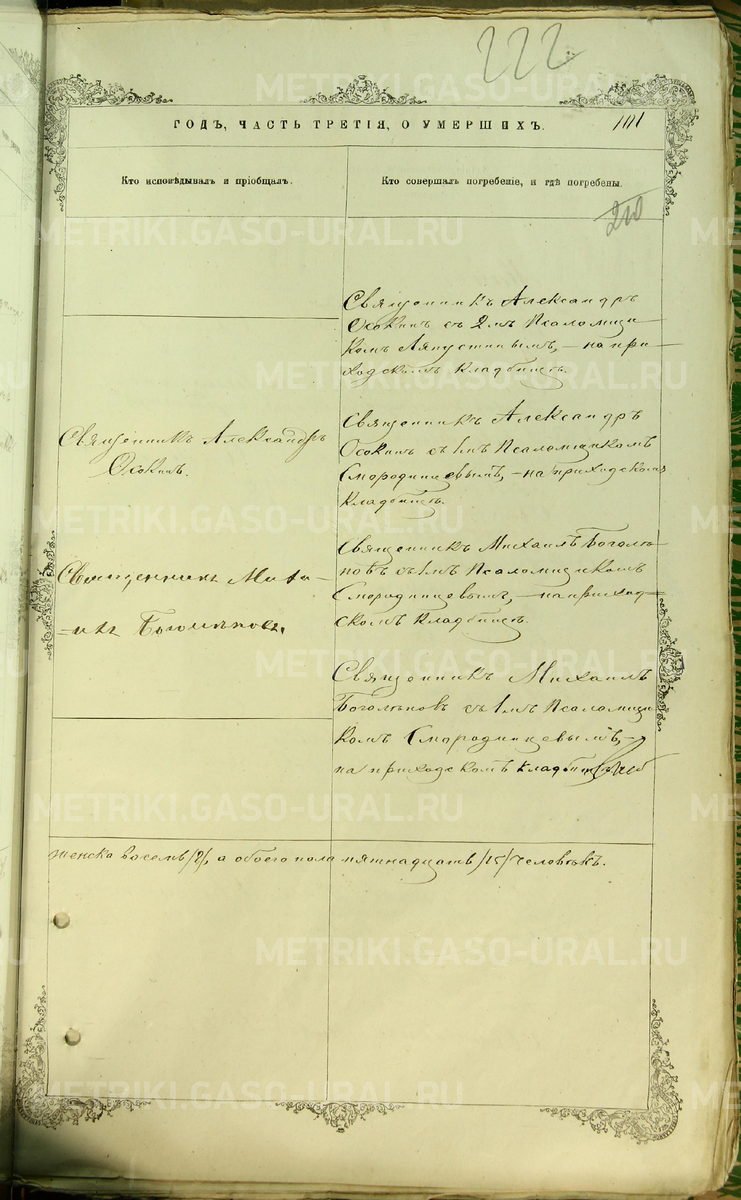 222
ГОДЪ, ЧАСТЬ ТРЕТІЯ, О УМЕРШИХЪ.
101
Кто исповѣдывалъ и пріобщалъ.
Кто совершалъ погребеніе, и гдѣ погребены.
210
Священникъ Александръ
Осокинъ съ 2мъ Псаломщи-
комъ Ляпустинымъ, – на при-
ходскомъ кладбищѣ.
Священникъ Александръ
Осокинъ.
Священникъ Александръ
Осокинъ съ 1мъ Псаломщикомъ
Смородинцевымъ, – на приходскомъ
кладбищѣ.
Священникъ Миха-
-илъ
Священникъ Михаилъ Боголѣ-
повъ съ 1мъ Псаломщикомъ
Смородинцевымъ, – на приход-
скомъ кладбищѣ.
Священникъ Михаилъ
Боголѣповъ съ 1мъ Псаломщи-
комъ Смородинцевымъ, –
на приходскомъ кладбищѣ
женска восемь /8/, а обоего пола пятнадцать /15/ человѣкъ.
METRIKI.GASO-URAL.RU